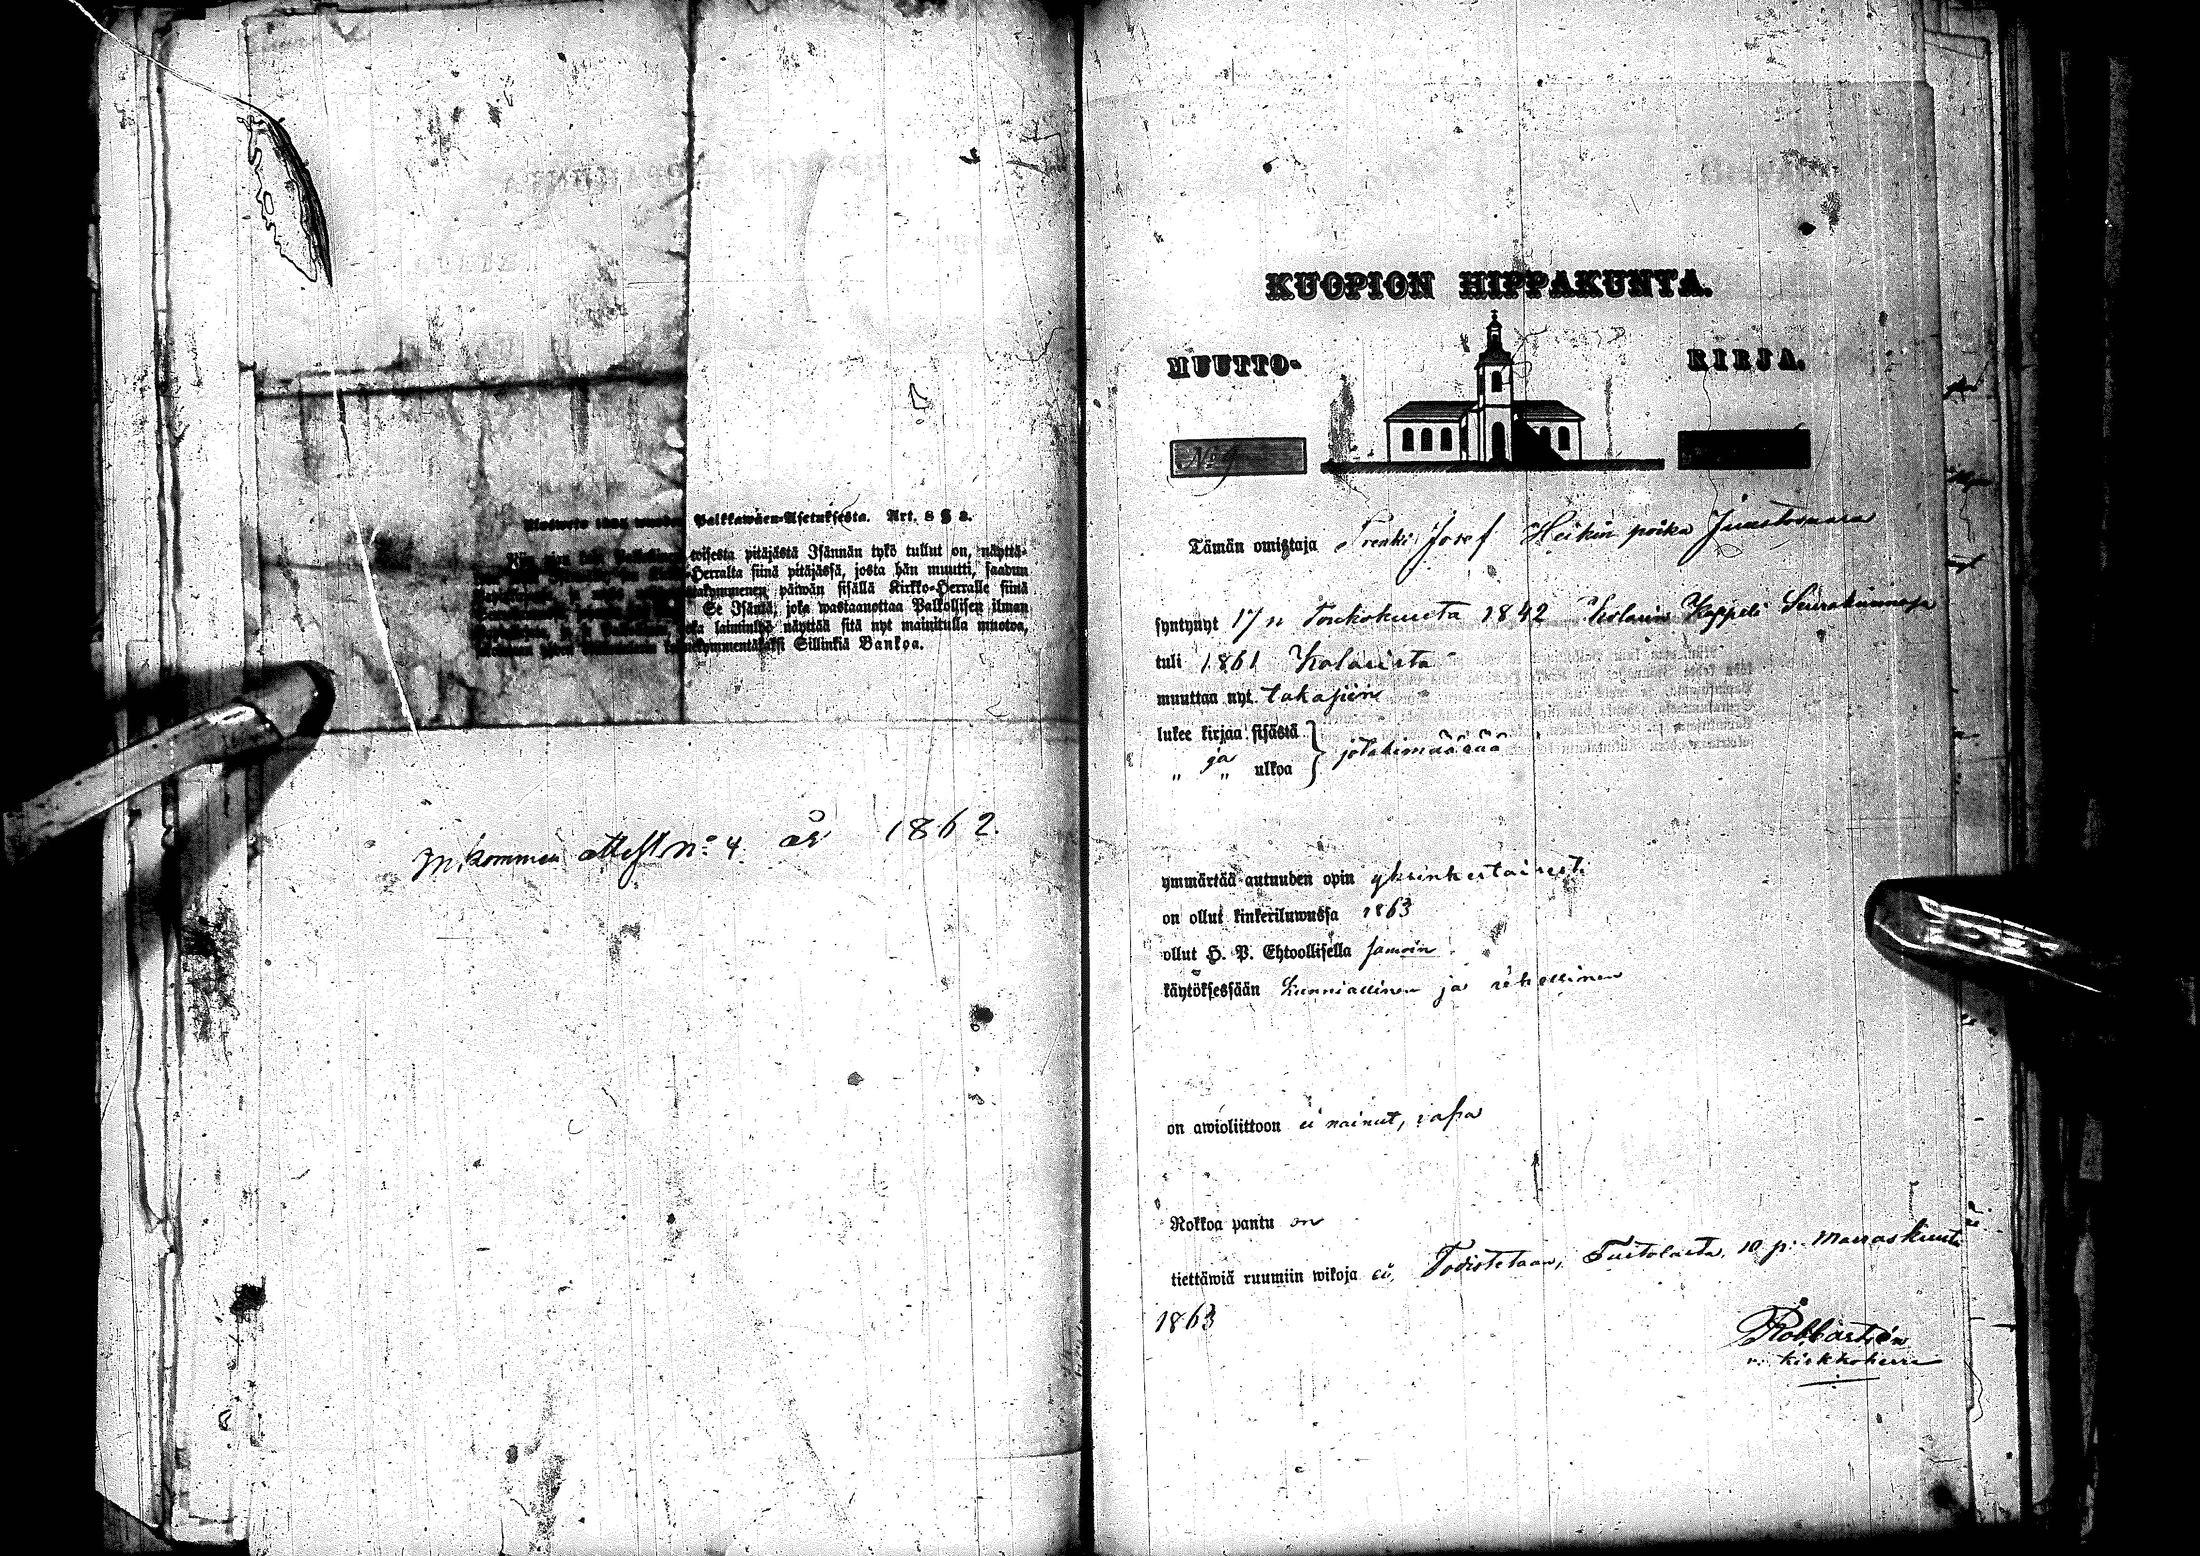 Palkkawäen-Asetuksesta. Art. 8 § 8.
toisesta pitäjästä Isännän tykö tullut on, näyttä-
Herralta siinä pitäjässä, josta hän muutti, saadun
päiwän sisällä Kirkko-Herralle siinä
Se Isäntä, joka wastaanottaa Palkollisen ilman
laiminlyö näyttää sitä nyt mainitulla muotoa,
Sillinkiä Bankoa.
Inkommen attest No: 4 år 1862.
KUOPION HIPPAKUNTA.
MUUTTO- KIRJA.
No 9
Tämän omistaja Renki Josef Heikin poika Juustovaara
syntynyt 17 n Toukokuuta 1842 Kolarin Kappeli Seurakunnasa
tuli 1861 Kolarista
muuttaa nyt takasiin
lukee kirjaa sisästä
ja jotakimäärää
" " ulkoa
ymmärtää autuuden opin yksinkertaisesti
on ollut kinkeriluwussa 1863
ollut H. P. Ehtoollisella samoin
käytöksessään kunniallinen ja rehellinen
on awioliittoon ei nainut, vapa
Rokkoa pantu on
tiettäwiä ruumiin wikoja ei, Todistetaan, Turtolasta, 10 p: Marraskuuta
1863
v. kirkkoherra